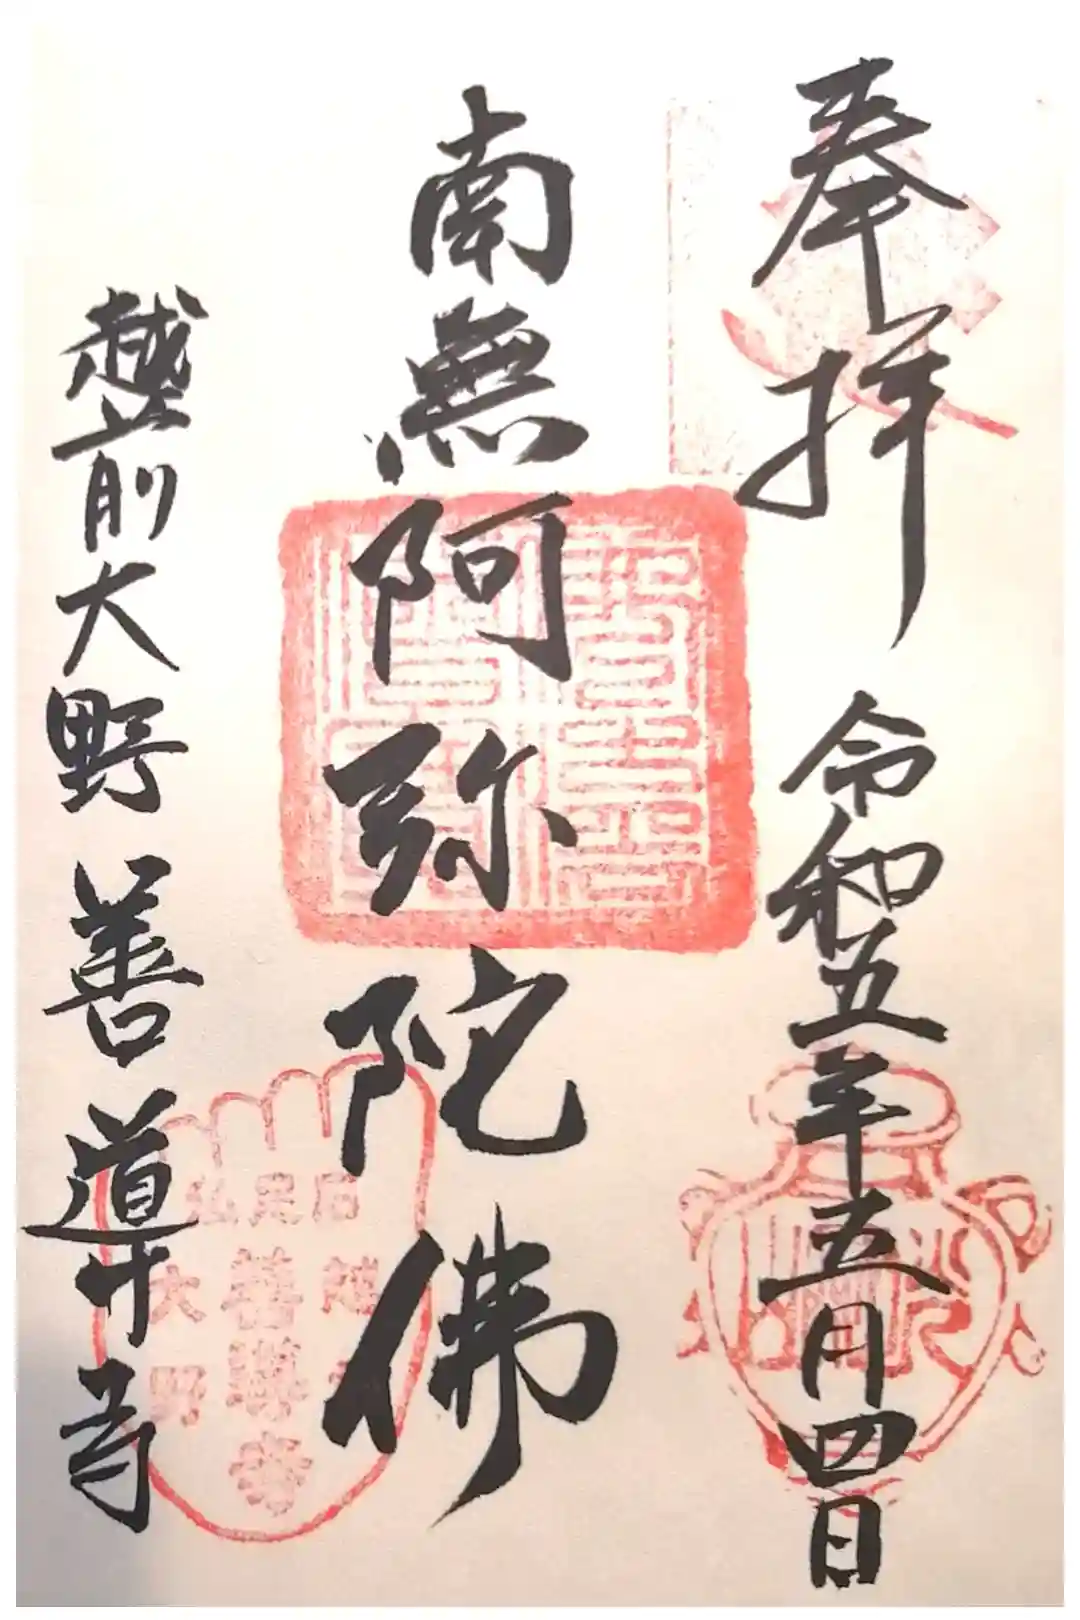 奉拝
令和五年五月四日
南無阿弥陀佛
越前大野 善導寺